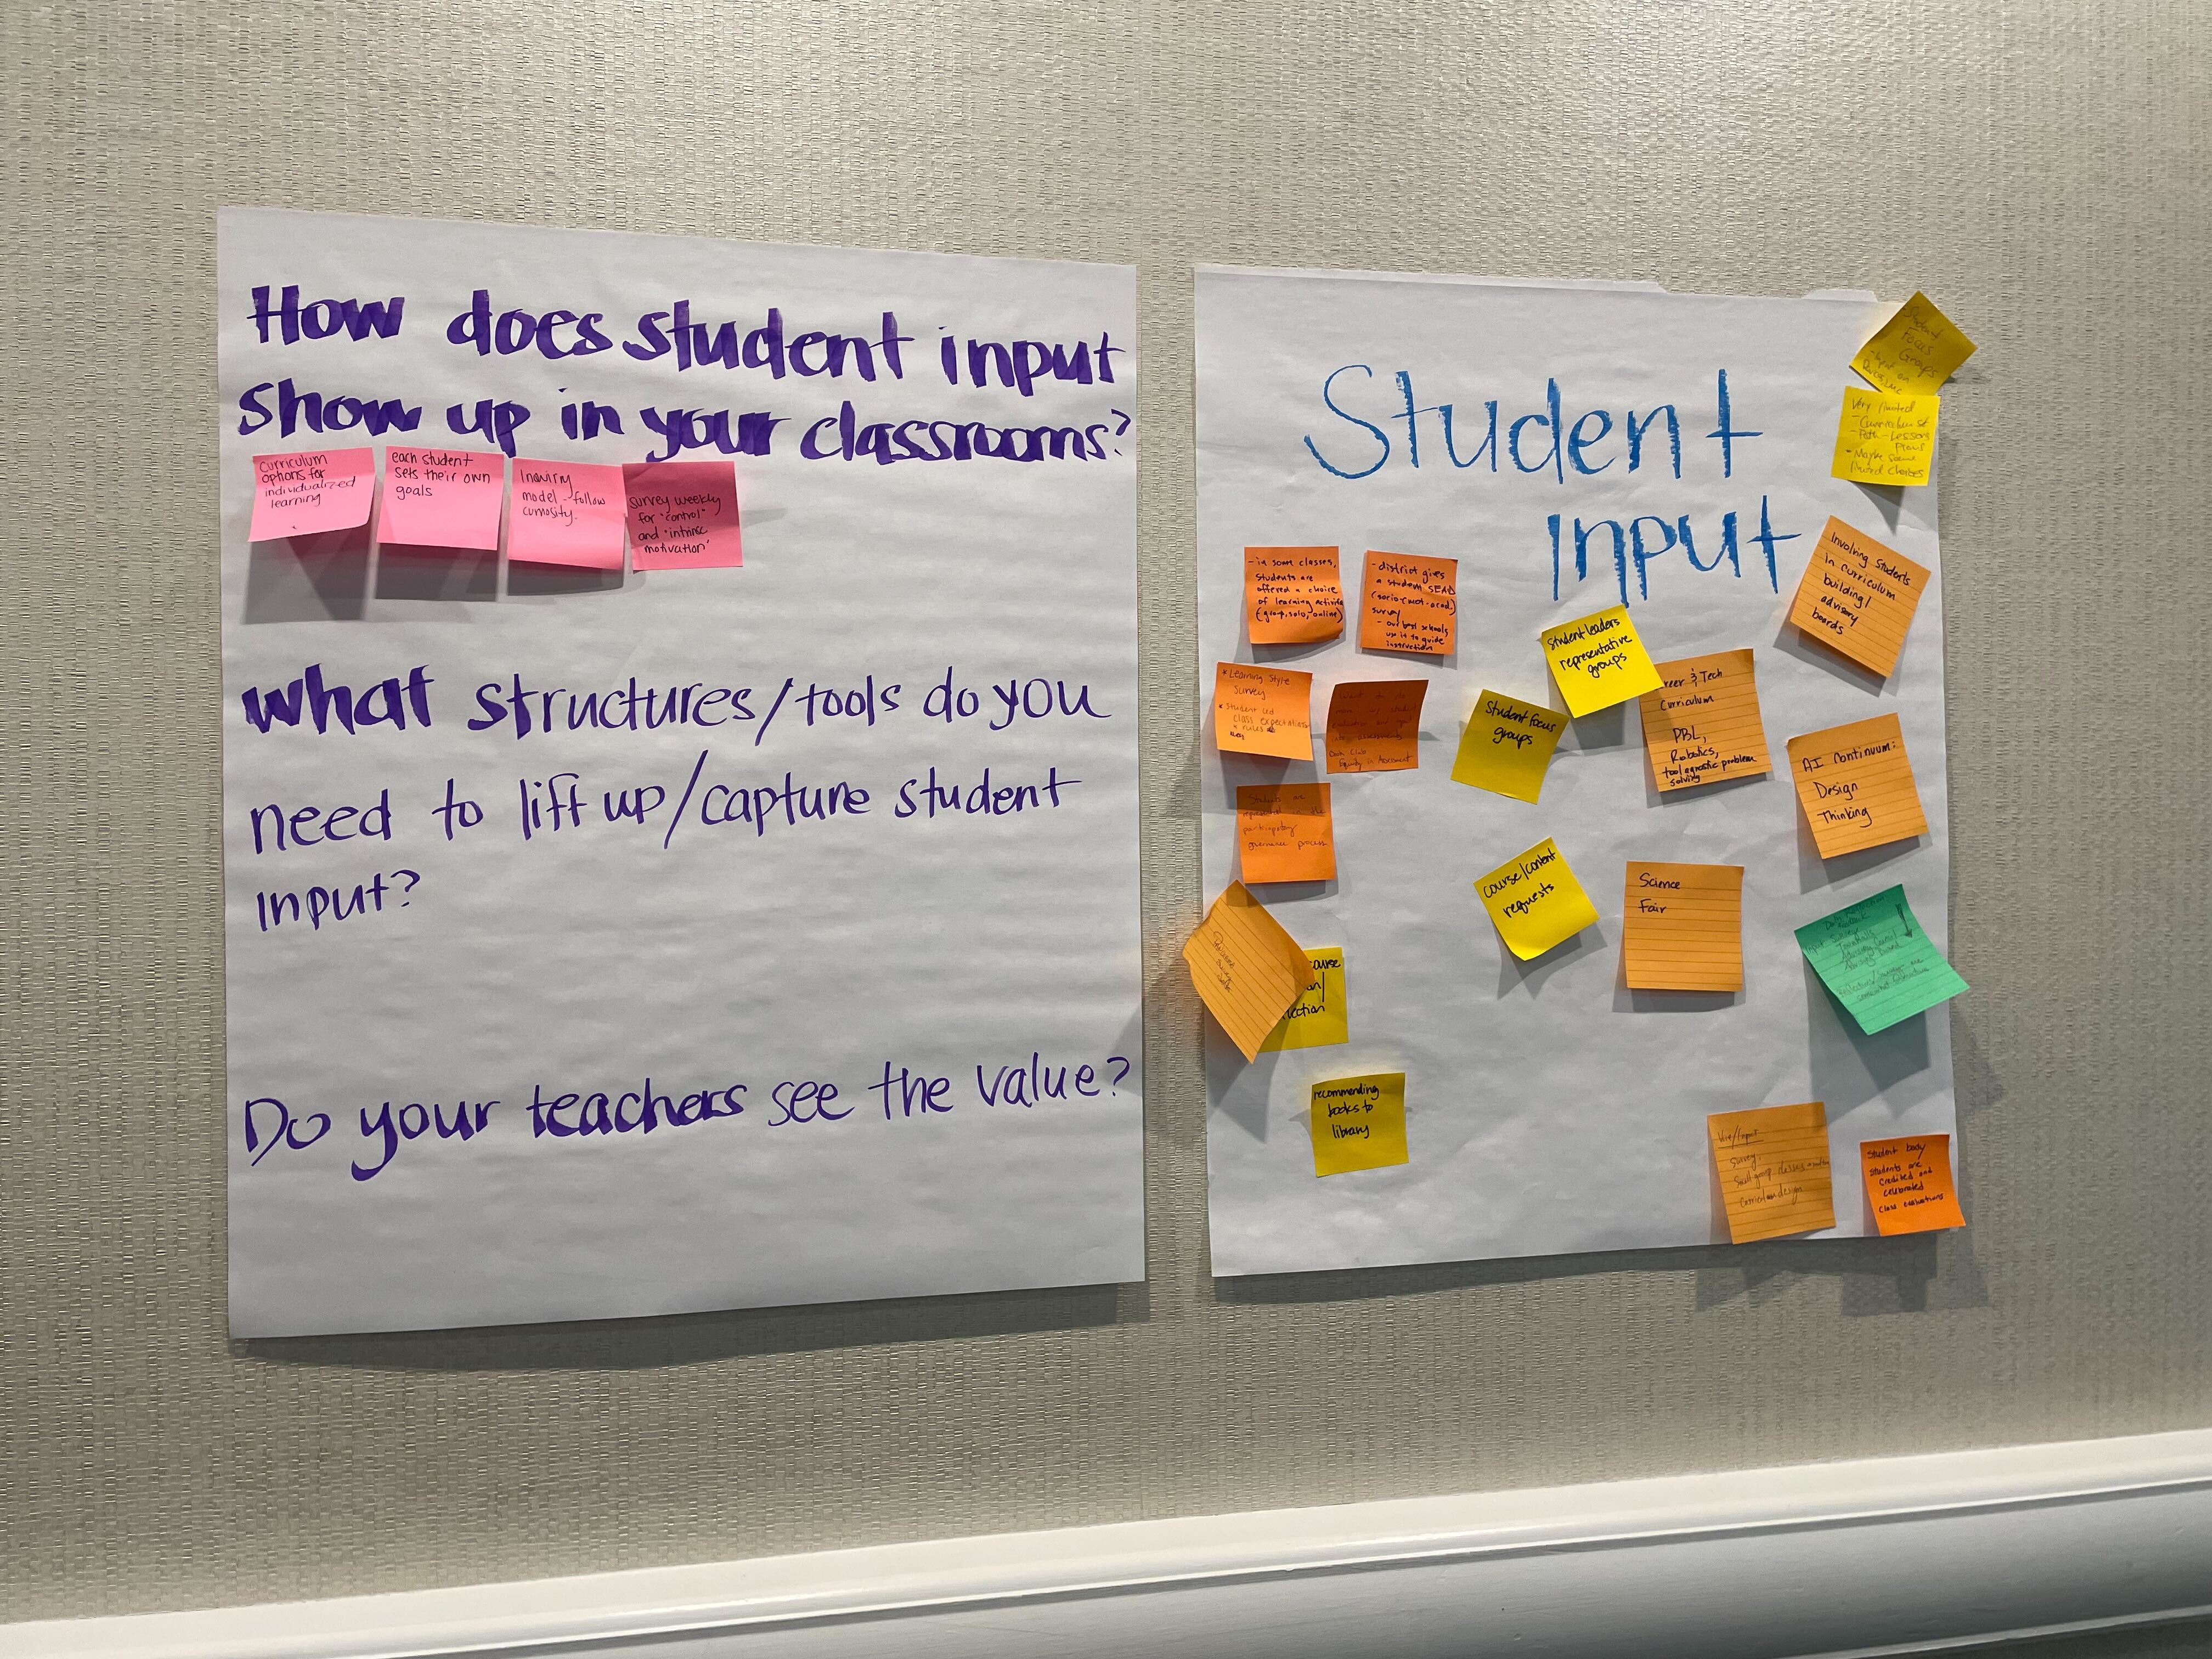 How does student input
show up in your classrooms?
curriculum
options for
individualized
learning
each student
sets their own
goals
Inquiry
model - follow
curiosity.
survey weekly
for "control"
and "intrinsic
motivation"
What structures/tools do you
need to lift up/capture student
input?
Do your teachers see the value?
Student
Input
Student
Focus
Groups
- Input on
Very limited
- Curriculum set
- Path - Lessons
Plans
- Maybe some
limited choices
- in some classes,
students are
offered a choice
of learning activity
(group, solo, online)
- district gives
a student SEAD
(socio-emot-acad.)
survey
- our best schools
use it to guide
instruction
Involving students
in curriculum
building/
advisory
boards
Student leaders
representative
groups
* Learning Style
Survey
* Student led
class expectations
+ rules
Data Club
Equity in Assessment
Student focus
groups
reer & Tech
Curriculum
PBL,
Robotics,
tool agnostic problem
solving
AI Continuum:
Design
Thinking
Students are
represented in the
participatory
governance process
course/content
requests
Science
Fair
course
on/
lection
recommending
books to
library
Voice/Input
Survey
Small group
curriculum design
Student body
students are
credited and
celebrated
class evaluations